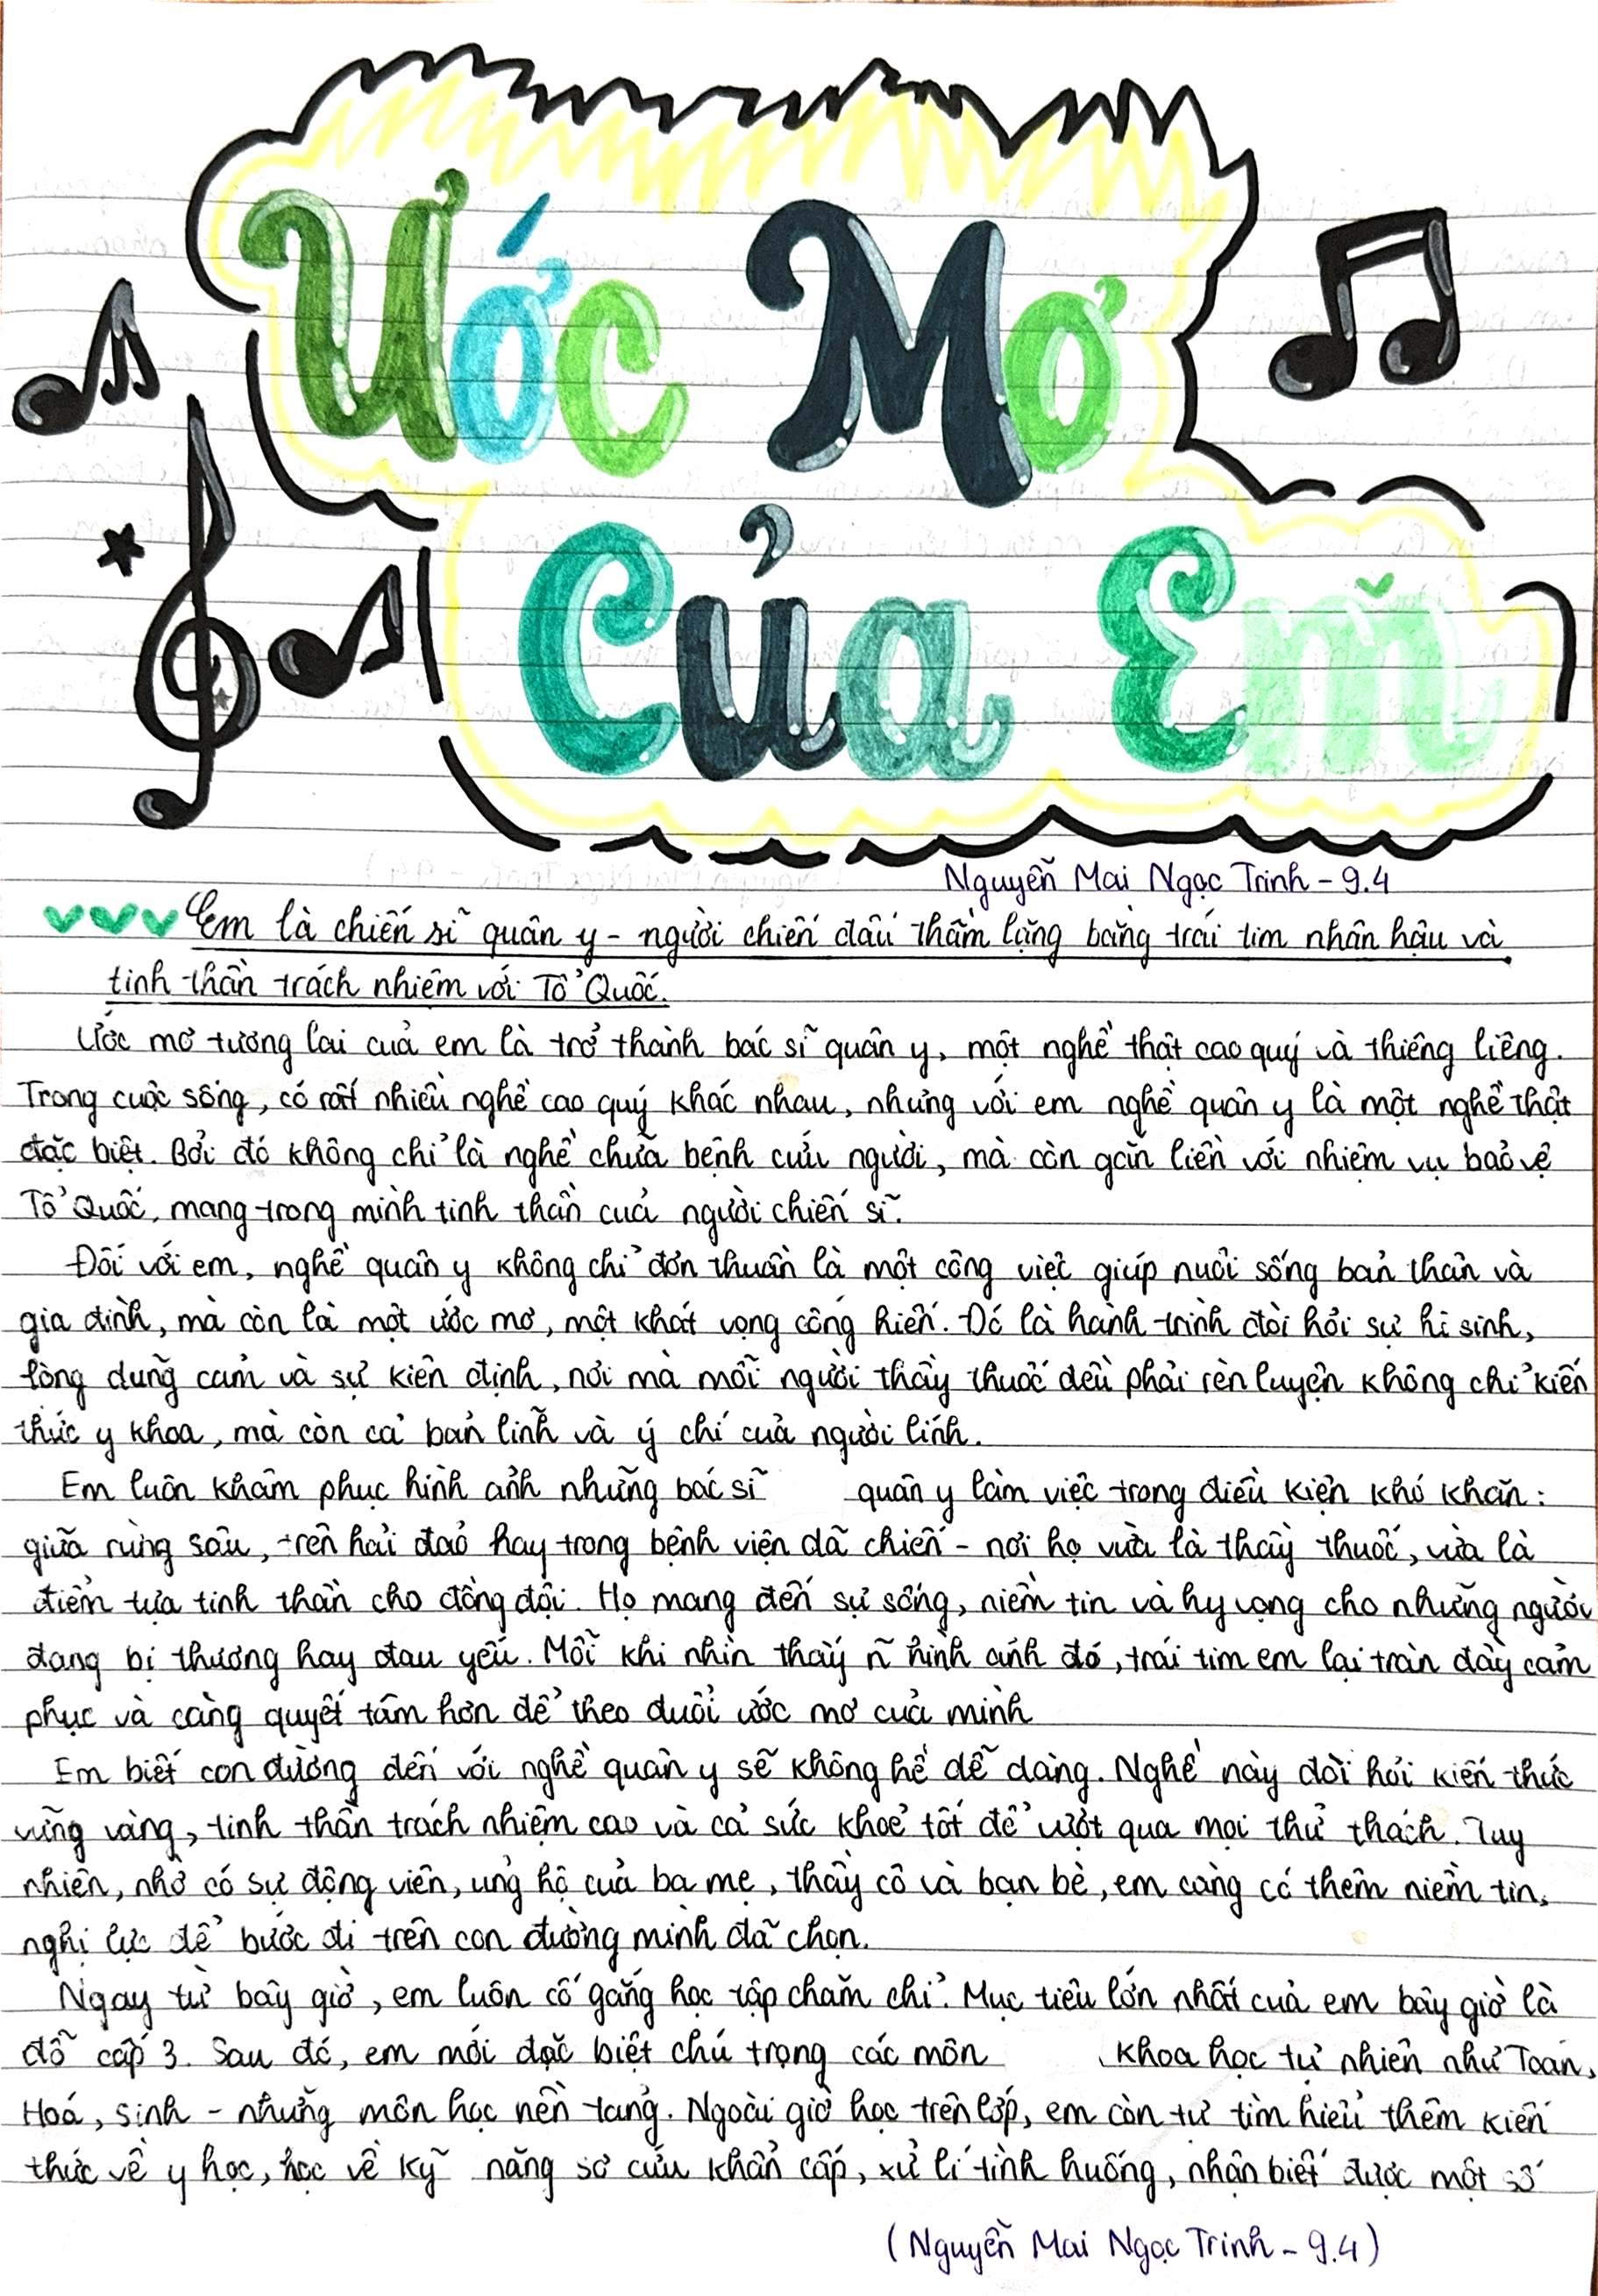 Ước Mơ
Của Em
Nguyễn Mai Ngọc Trinh - 9.4
Em là chiến sĩ quân y - người chiến đấu thầm lặng bằng trái tim nhân hậu và
tinh thần trách nhiệm với Tổ Quốc.
Ước mơ tương lai của em là trở thành bác sĩ quân y, một nghề thật cao quý và thiêng liêng.
Trong cuộc sống, có rất nhiều nghề cao quý khác nhau, nhưng với em nghề quân y là một nghề thật
đặc biệt. Bởi đó không chỉ là nghề chữa bệnh cứu người, mà còn gắn liền với nhiệm vụ bảo vệ
Tổ Quốc, mang trong mình tinh thần của người chiến sĩ.
Đối với em, nghề quân y không chỉ đơn thuần là một công việc giúp nuôi sống bản thân và
gia đình, mà còn là một ước mơ, một khát vọng cống hiến. Đó là hành trình đòi hỏi sự hi sinh,
lòng dũng cảm và sự kiên định, nơi mà mỗi người thầy thuốc đều phải rèn luyện không chỉ kiến
thức y khoa, mà còn cả bản lĩnh và ý chí của người lính.
Em luôn khâm phục hình ảnh những bác sĩ quân y làm việc trong điều kiện khó khăn:
giữa rừng sâu, trên hải đảo hay trong bệnh viện dã chiến - nơi họ vừa là thầy thuốc, vừa là
điểm tựa tinh thần cho đồng đội. Họ mang đến sự sống, niềm tin và hy vọng cho những người
đang bị thương hay đau yếu. Mỗi khi nhìn thấy ñ hình ảnh đó, trái tim em lại tràn đầy cảm
phục và càng quyết tâm hơn để theo đuổi ước mơ của mình
Em biết con đường đến với nghề quân y sẽ không hề dễ dàng. Nghề này đòi hỏi kiến thức
vững vàng, tinh thần trách nhiệm cao và cả sức khoẻ tốt để vượt qua mọi thử thách. Tuy
nhiên, nhờ có sự động viên, ủng hộ của ba mẹ, thầy cô và bạn bè, em càng có thêm niềm tin,
nghị lực để bước đi trên con đường mình đã chọn.
Ngay từ bây giờ, em luôn cố gắng học tập chăm chỉ. Mục tiêu lớn nhất của em bây giờ là
đỗ cấp 3. Sau đó, em mới đặc biệt chú trọng các môn khoa học tự nhiên như Toán,
Hoá, Sinh - những môn học nền tảng. Ngoài giờ học trên lớp, em còn tự tìm hiểu thêm kiến
thức về y học, học về kỹ năng sơ cứu khẩn cấp, xử lí tình huống, nhận biết được một số
(Nguyễn Mai Ngọc Trinh - 9.4)